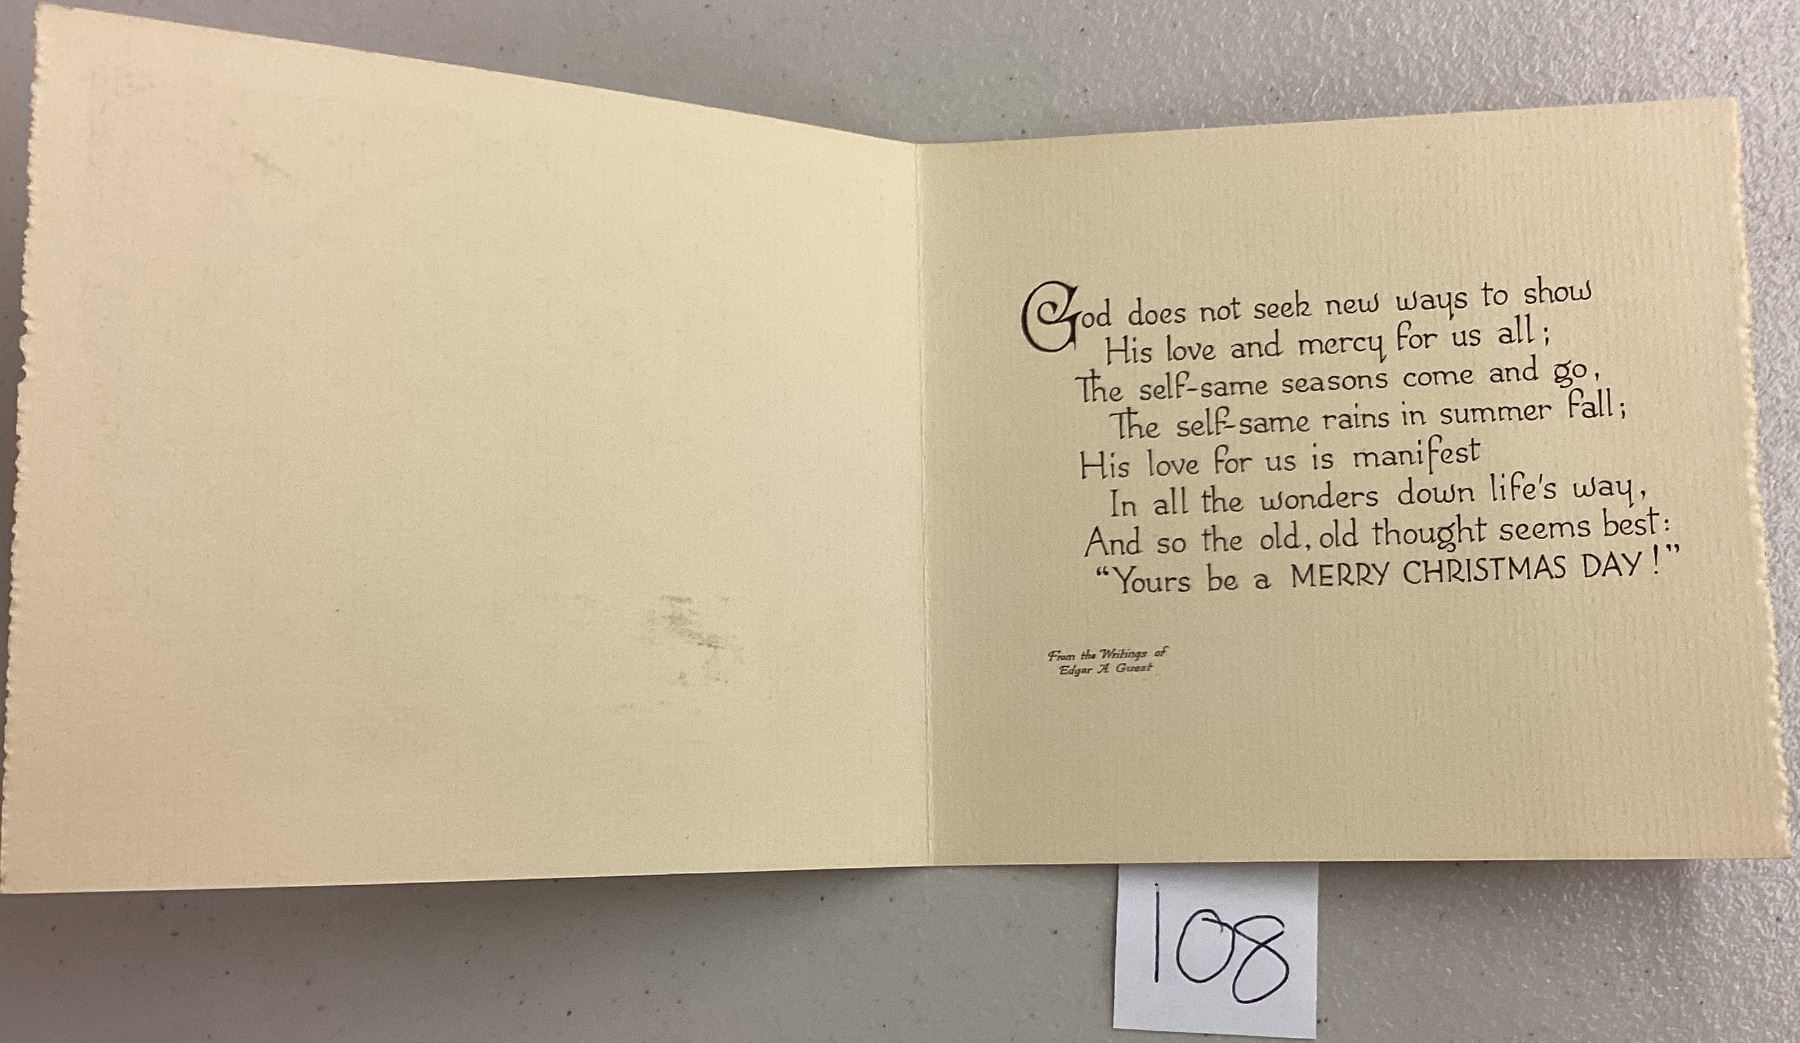 God does not seek new ways to show
His love and mercy for us all;
The self-same seasons come and go,
The self-same rains in summer fall;
His love for us is manifest
In all the wonders down life's way,
And so the old, old thought seems best:
“Yours be a MERRY CHRISTMAS DAY!”
From the Writings of
Edgar A Guest
108